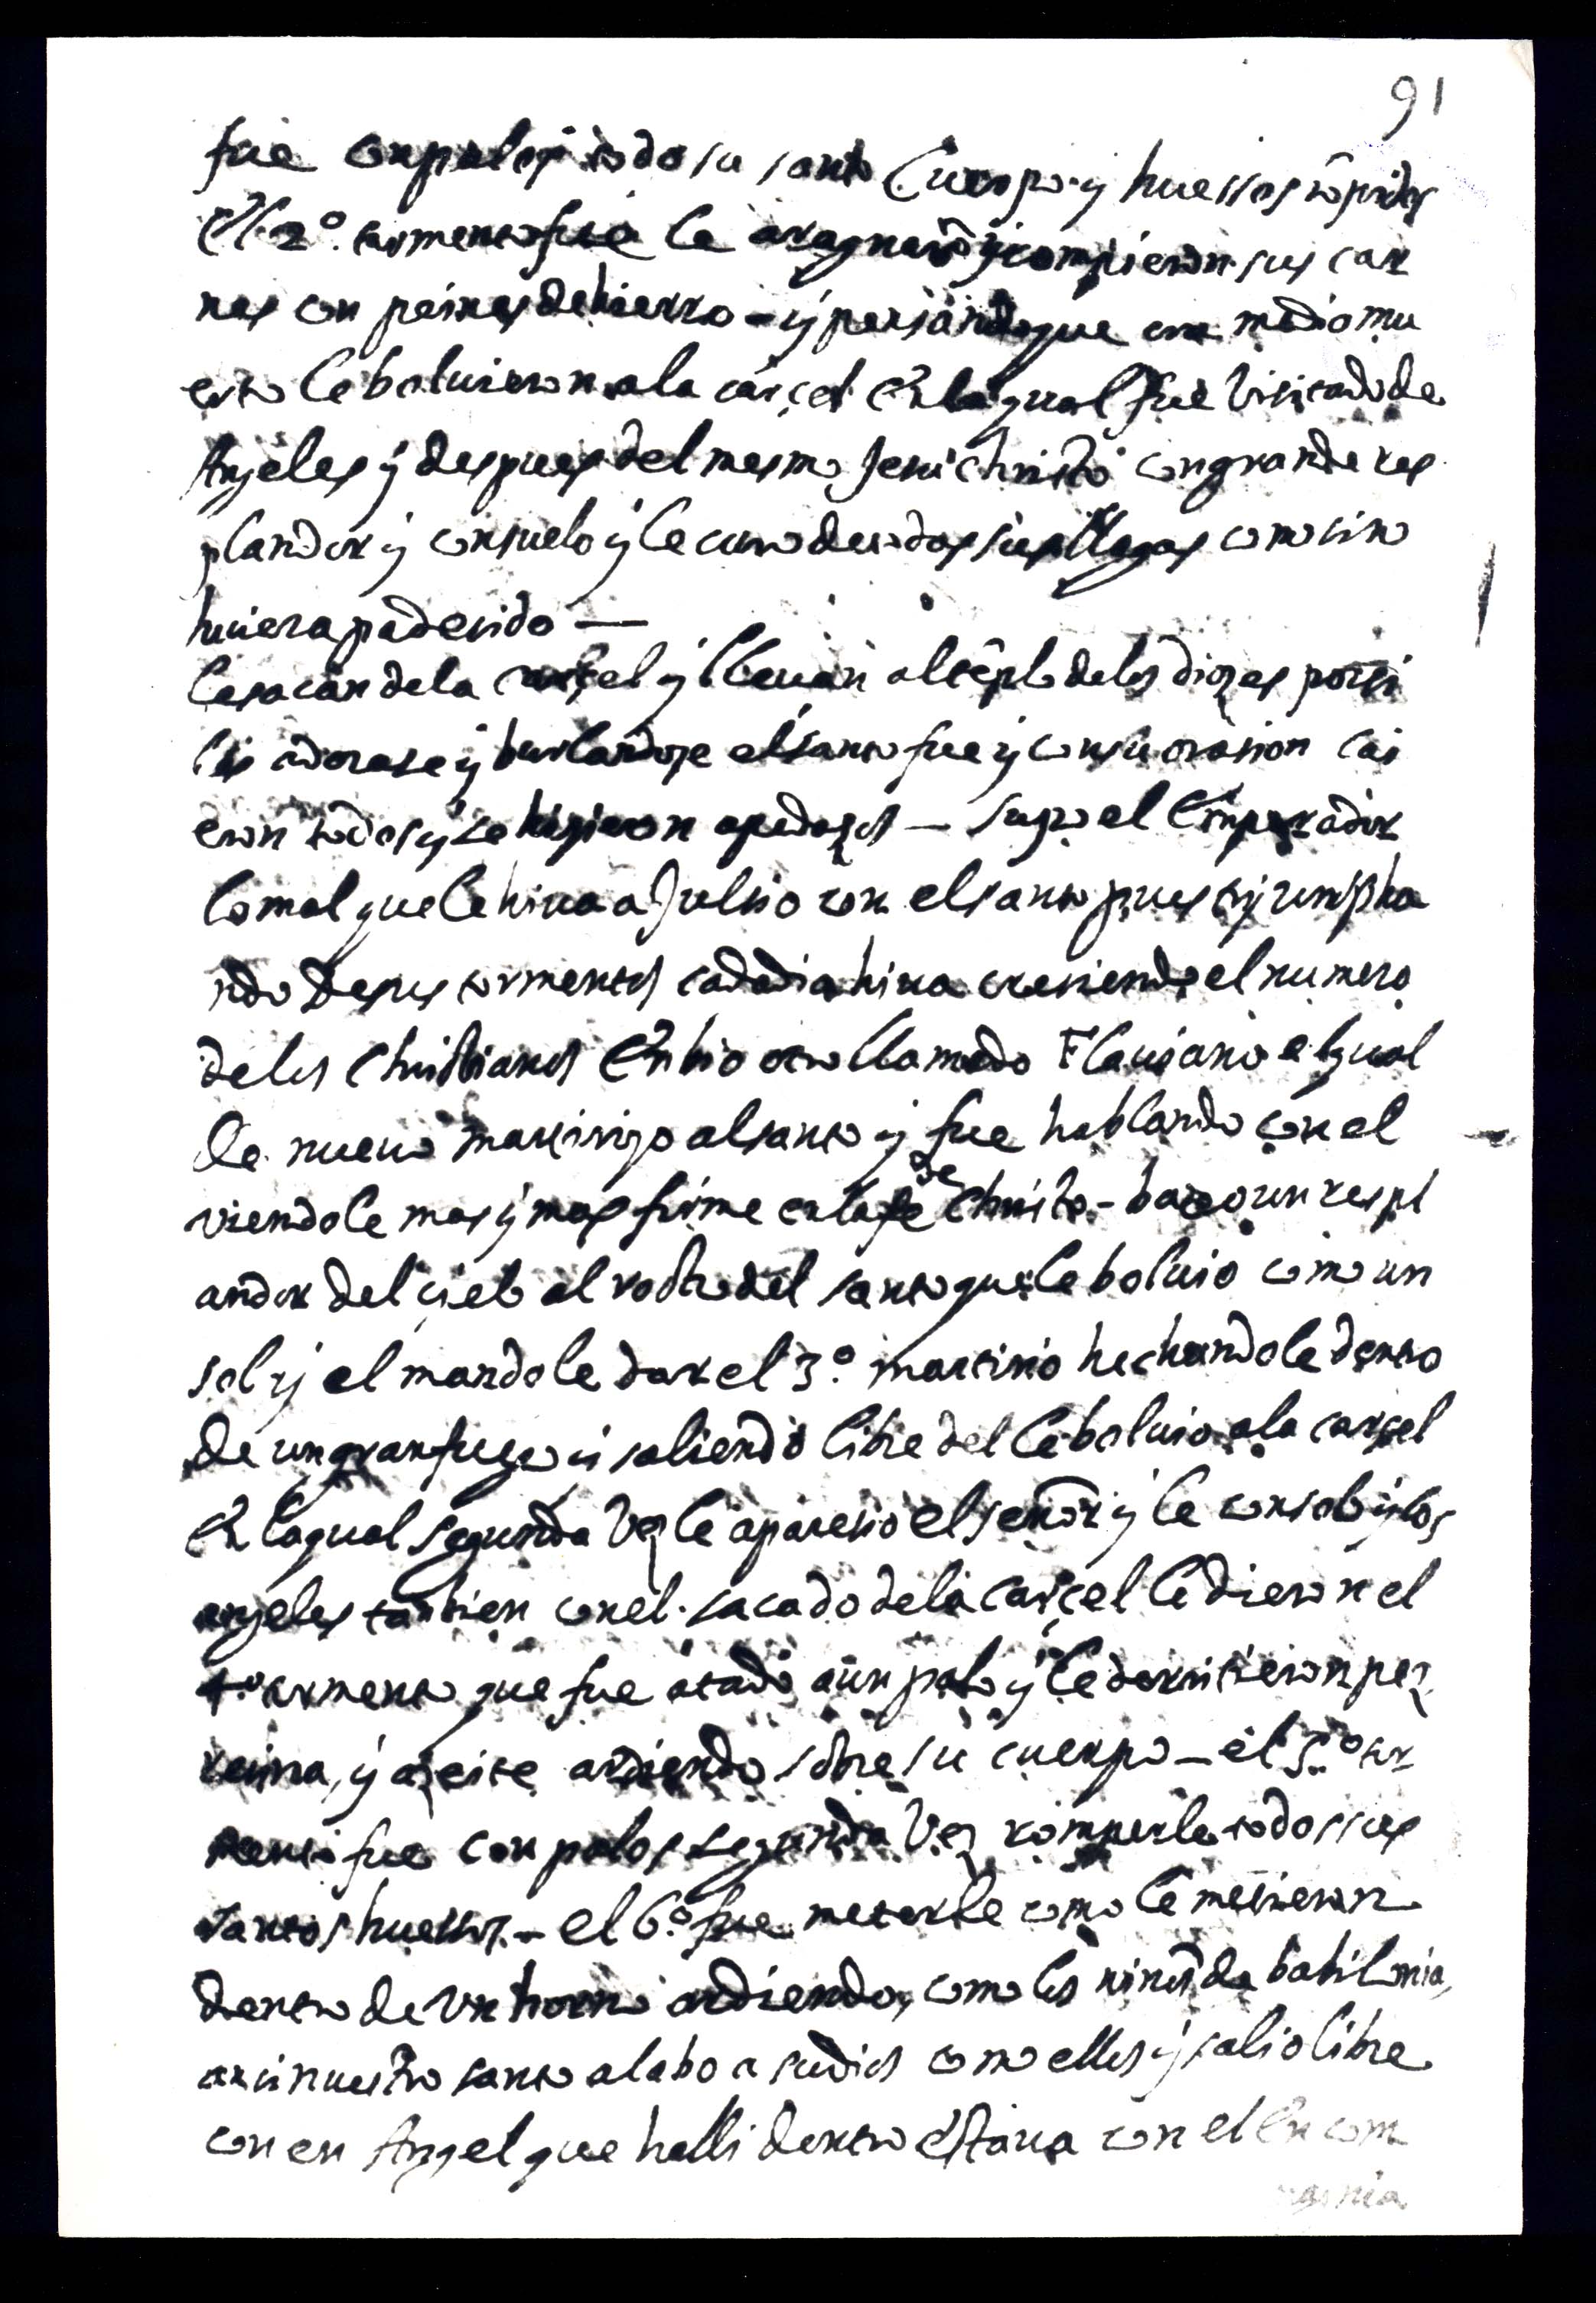 91
fue con palos todo su santo Cuerpo y huessos
El 2º. tormento fue le aragnarō y rompieron sus car
nes con peines de hierro - y pensando que era medio mu
erto le boluieron a la carçel En la qual fue visitado de
Angeles y despues del mesmo Jesu christo con grande res
plandor y consuelo y le curo de todas sus llagas como si no
huuiera padesido —
le sacan de la carçel y lleuan al tēplo de los diozes por si
los adorase y burlandose el santo fue y con su orasion cai
eron todos y se hizieron a pedazos — supo el Emperador
lo mal que le hiua a Julsio con el santo pues trjumpha
ndo de sus tormentos cada dia hiua cresiendo el numero
de los Christianos Enbio otro llamado Flauiano el qual
de nueuo martirizo al santo y fue hablando con el
viendole mas y mas firme en la fe de Christo - baxo un respl
andor del çielo al rostro del santo que le boluio como un
sol y el mandole dar el 3º. martirio hechandole dentro
de un gran fuego y saliendo libre del le boluio a la carçel
En la qual segunda vez le aparesio el señor y le consolo y los
angeles tanbien con el. sacado de la carçel le dieron el
4º tormento que fue atado a un palo y le derritieron pez
resina, y azeite ardiendo sobre su cuerpo — el 5º. tor
mento fue con palos segunda vez romperle todos sus
santos huessos. - el 6º. fue meterle como le metieron
dentro de vn horno ardiendo, como los niños de babilonia,
asi nuestro santo alabo a su dios como ellos y salio libre
con en Angel que halli dentro estaua con el En com
pania